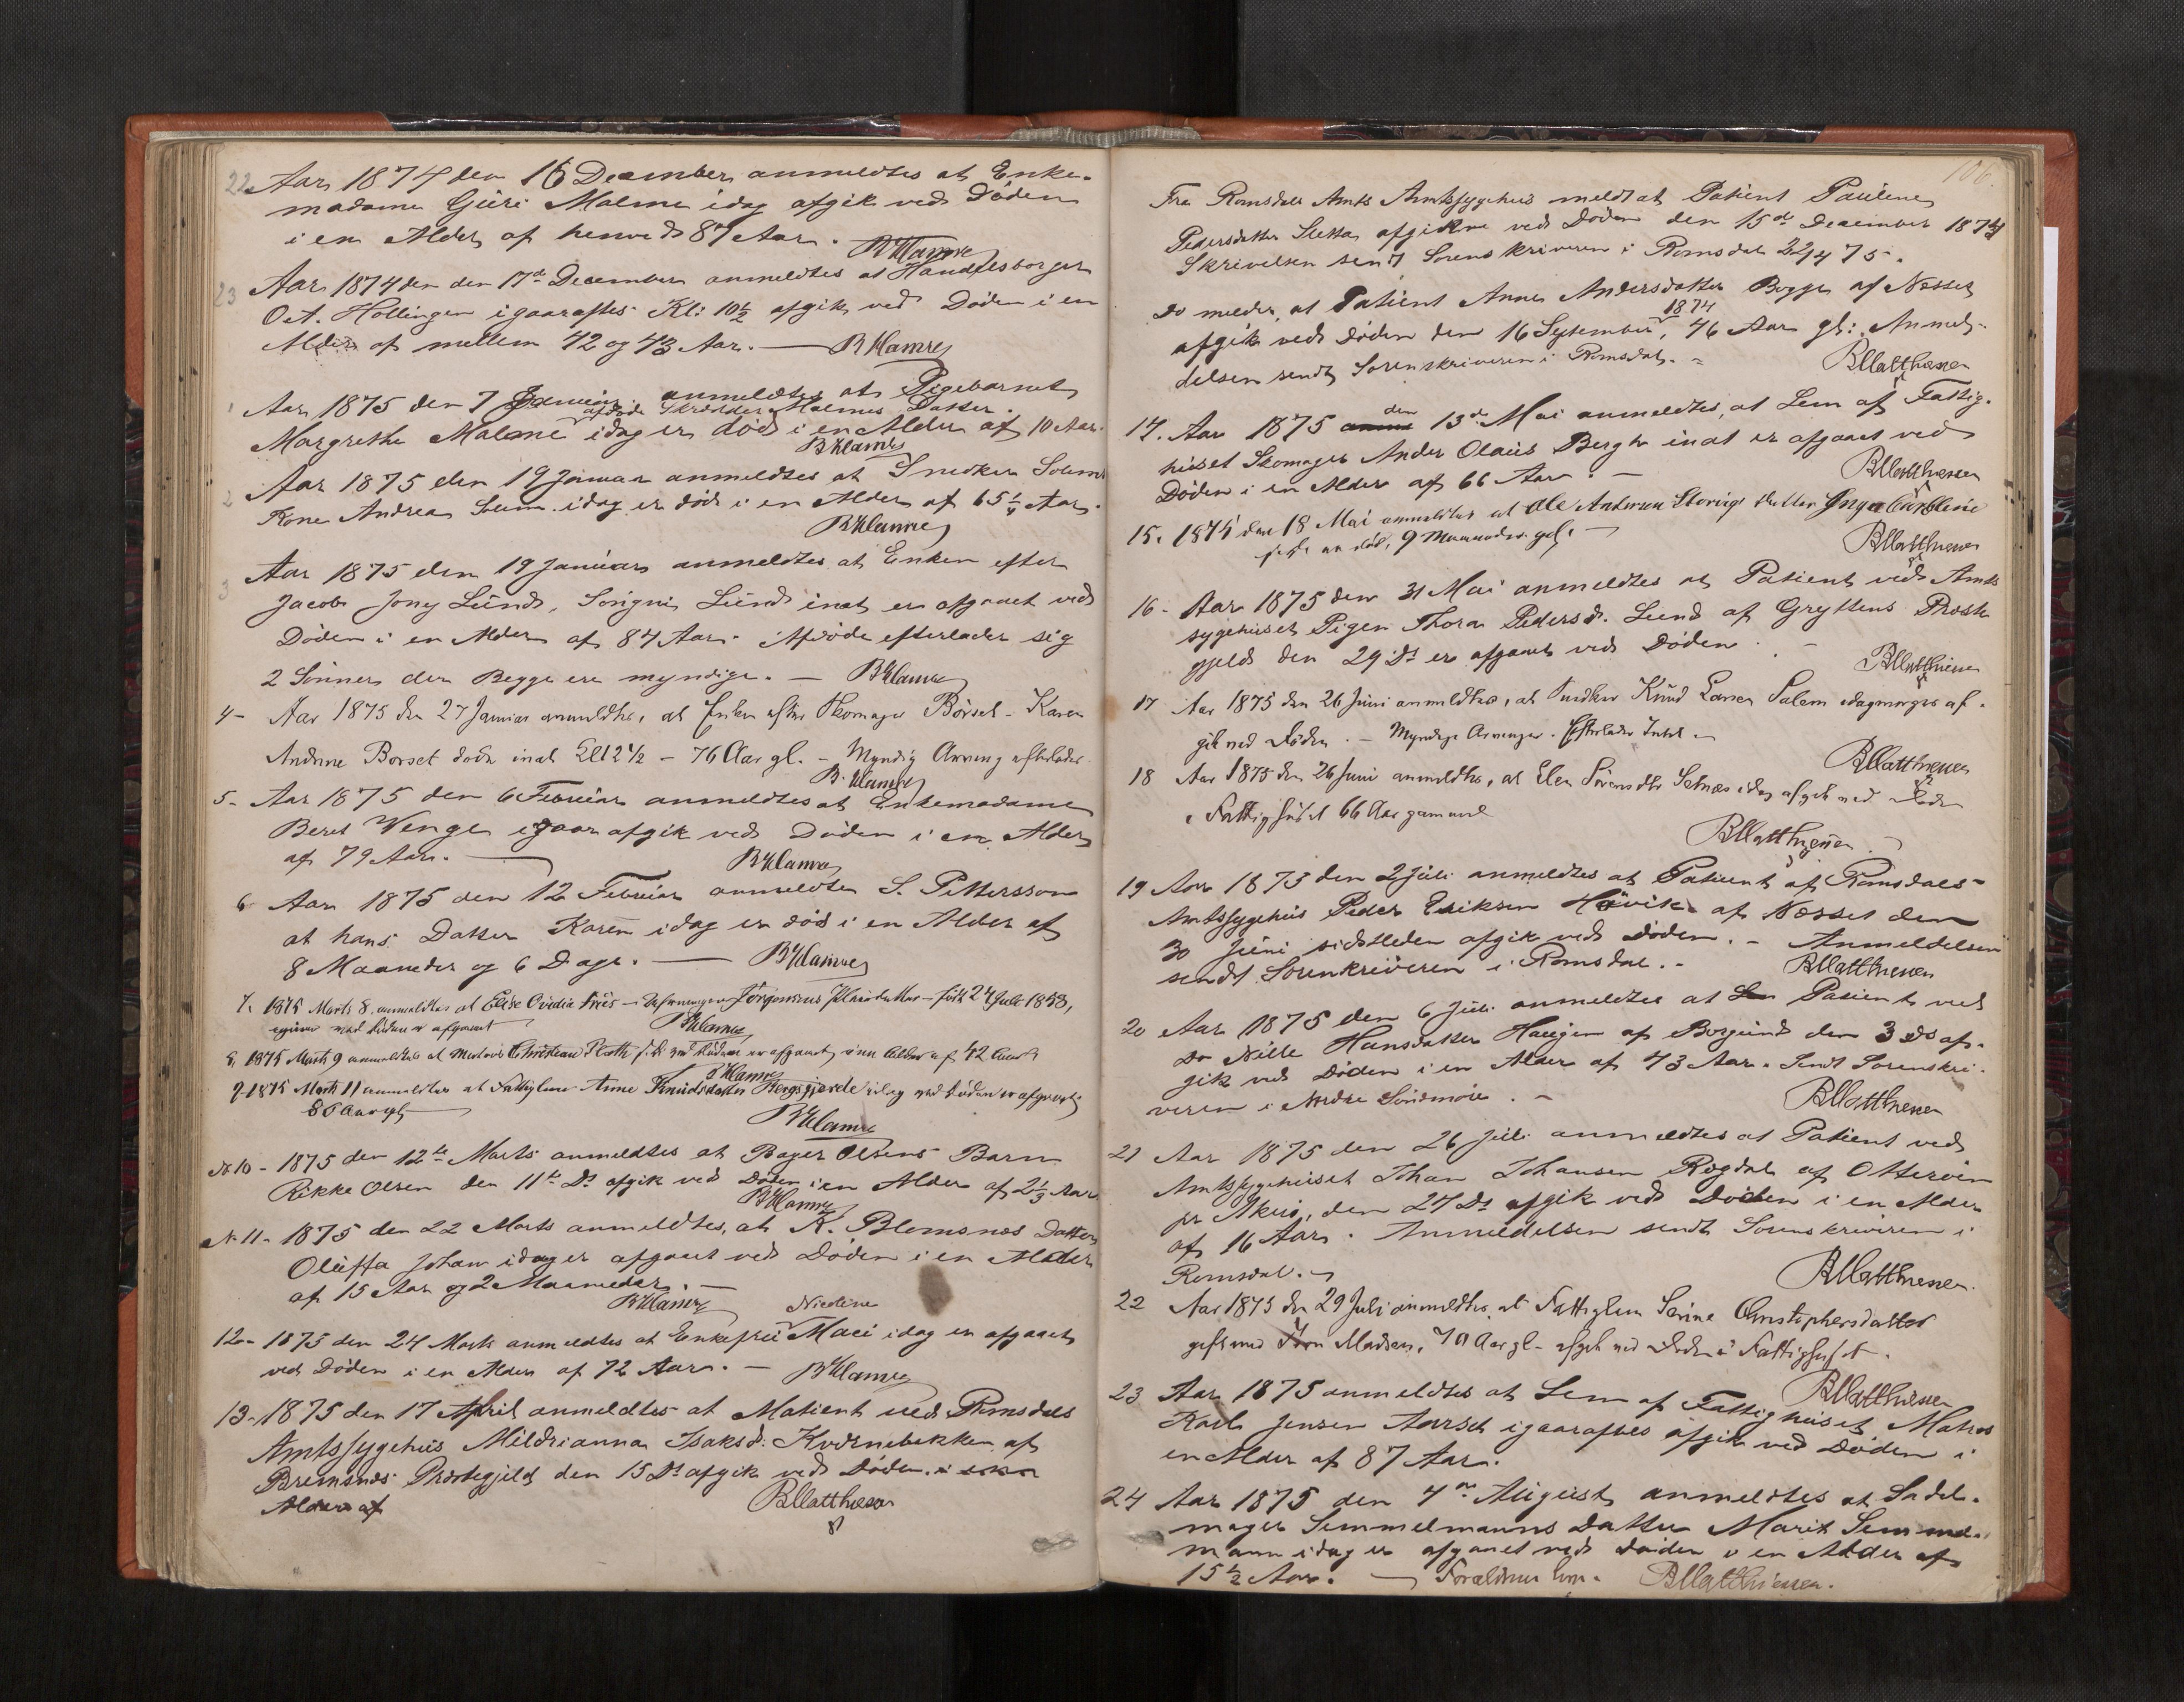 22 Aar 1874 den 16 December anmeldtes at Enke-
madame Güri Malme idag afgik ved Döden
i en Alder af henved 87 Aar. BKlamre
23 Aar 1874 den den 17d December anmeldtes at Handelsborger
O.A. Hollingen igaaraftes Kl: 10½ afgik ved Döden i en
Alder af mellem 42 og 43 Aar. — BKlamre
1 Aar 1875 den 7 Januar anmeldtes at Pigebarnet
afdöde Skrædder Malmes Datter
Margrethe Malme idag er död i en Alder af 10 Aar.
BKlamre
2 Aar 1875 den 19 Januar anmeldtes at Snedker Solems
Kone Andrea Solem idag er död i en Alder af 65 Aar.
BKlamre
3 Aar 1875 den 19 Januar anmeldtes at Enken efter
Jacob Jony Lünd, Lünd inat er afgaaet ved
Döden i en Alder af 84 Aar. Afdöde efterlader sig
2 Sönner der Begge ere myndige. — BKlamre
4 - Aar 1875 den 27 Januar anmeldtes, at Enken efter Skomager Börset - Karen
Andrine Borset döde inat Kl 12½ - 76 Aar gl. - Myndig Arving efterlades.
BKlamre
5 - Aar 1875 den 6 Februar anmeldtes at Enkemadame
Beret Wenge igaar afgik ved Döden i en Alder
af 79 Aar. — BKlamre
6 Aar 1875 den 12 Februar anmeldte S. Pettersson
at hans Datter Karen idag er död i en Alder af
8 Maaneder og 6 Dage. — BKlamre
7. 1875 Marts 8. anmeldtes at Elise Ovedia Friis - Jörgensens - född 24 Juli 1858,
ved Döden er afgaaet
BKlamre
8. 1875 Marts 9 anmeldtes at Christian ved Döden er afgaaet i en Alder af 42 Aar
BKlamre
9. 1875 Marts 11 anmeldtes at Fattiglem Anne Knudsdatter idag ved Döden er afgaaet
86 Aar gl. BKlamre
No 10 - 1875 den 12te Marts anmeldtes at Bager Olsens Barn
Rikke Olsen den 11te Ds afgik ved Döden i en Alder af 2⅓ Aar
BKlamre
No 11 - 1875 den 22 Marts anmeldtes, at K. Blemsnæs Datter
Oluffa Johan idag er afgaaet ved Döden i en Alder
af 15 Aar og 2 Maaneder. —
BKlamre Nicoline
12 - 1875 den 24 Marts anmeldtes at Enkefru Maei idag er afgaaet
ved Döden i en Alder af 72 Aar. — BKlamre
13 - 1875 den 17 April anmeldtes at Patient ved Romsdals
Amtssygehus Mildrianna Isaksd. Kvernebekken af
Bremsnæs Præstegjeld den 15 Ds afgik ved Döden. i en
Alder af BMatthiesen
106.
Fra Romsdals Amts Amtssygehus meldt at Patient Pauline
Pedersdatter Sletta afgikne ved Döden den 15de December 1874
Skrivelsen sendt Sorenskriveren i Romsdal 22/4 75.
Do melder, at Patient Anne Andersdatter Bogge af Nesset
1874
afgik ved Döden den 16 September, 46 Aar gl: Anmel-
delsen sendt Sorenskriveren i Romsdal. - BMatthiesen
den
14. Aar 1875 13de Mai anmeldtes, at Lem af Fattig-
huset Skomager Ander Olaus Bergh inat er afgaaet ved
Döden i en Alder af 66 Aar. — BMatthiesen
15. 1875 den 18 Mai anmeldtes at Ole Andersen Storvigs Datter Inga
er död, 9 Maaneder gl. — BMatthiesen
16 - Aar 1875 den 31 Mai anmeldtes at Patient ved Amts
sygehuset Pigen Thora Pedersd. Lund af Gryttens Præste
gjeld den 29 Ds er afgaaet ved Döden. - BMatthiesen
17 Aar 1875 den 26 Juni anmeldtes, at Snedker Knud Larsen Salem idagmorges af-
gik ved Döden. - Myndige Arvinger. Efterlader Intet. -
BMatthiesen
18 Aar 1875 den 26 Juni anmeldtes, at Elen Sörensdtr Setnæs idag afgik ved Döden
i Fattighuset 66 Aar gammel
BMatthiesen
19 Aar 1875 den 2 Juli anmeldtes at Patient af Romsdals-
Amtssygehus Peder Eriksen Hövik af Næsset den
30 Juni sidstleden afgik ved Döden. - Anmeldelsen
sendt Sorenskriveren i Romsdal. - BMatthiesen
20 Aar 1875 den 6 Juli anmeldtes at Patient ved
Do Nille Hansdatter Haugen af Borgund den 3 Ds af-
gik ved Döden i en Alder af 43 Aar. Sendt Sorenskri-
veren i Nordre Söndmöre. - BMatthiesen
21 Aar 1875 den 26 Juli anmeldtes at Patient ved
Amtssygehuset Johan Johansen Rögdal af Otteröen
pr Akerö, den 24 Ds afgik ved Döden i en Alder
af 16 Aar. Anmeldelsen sendt Sorenskriveren i
Romsdal. - BMatthiesen
22 Aar 1875 den 29 Juli anmeldtes, at Fattiglem Serine Christophersdatter
gift med Iver Madsen, 70 Aar gl - afgik ved Döden i Fattighuset.
BMatthiesen
23 Aar 1875 anmeldtes at Lem af Fattighuset Matros
Karl Jensen Aarset igaaraftes afgik ved Döden i
en Alder af 87 Aar.
24 Aar 1875 den 4de August anmeldtes at Sadel-
mager Semmelmanns Datter Marit Semmel-
mann idag er afgaaet ved Döden i en Alder af
15½ Aar. — Forældrene leve. BMatthiesen.